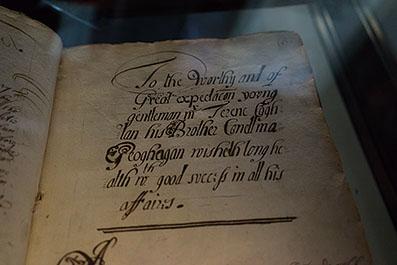 To the worthy and of
Great expectačon yovng
gentleman mr Terenc Cogh
lan his Brother Conell ma
Geoghegan wisheth long he
alth wth good svccess in all his
affaires.
A